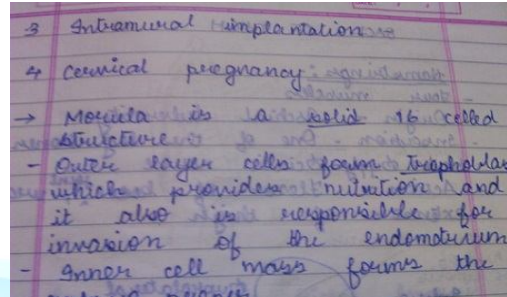 3 Intramural implantation
4 Cervical pregnancy:
→ Morula is a solid 16 celled
structure
- Outer layer cells form trophoblas
which provides nutrition and
it also is responsible for
invasion of the endometrium
- Inner cell mass forms the